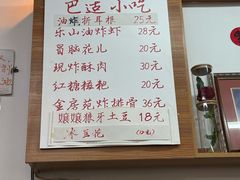 巴适小吃
油炸折耳根 25元
乐山油炸虾 28元
蜀脑花儿 20元
现炸酥肉 30元
红糖糍粑 20元
金房苑炸排骨 36元
嬢嬢狼牙土豆 18元